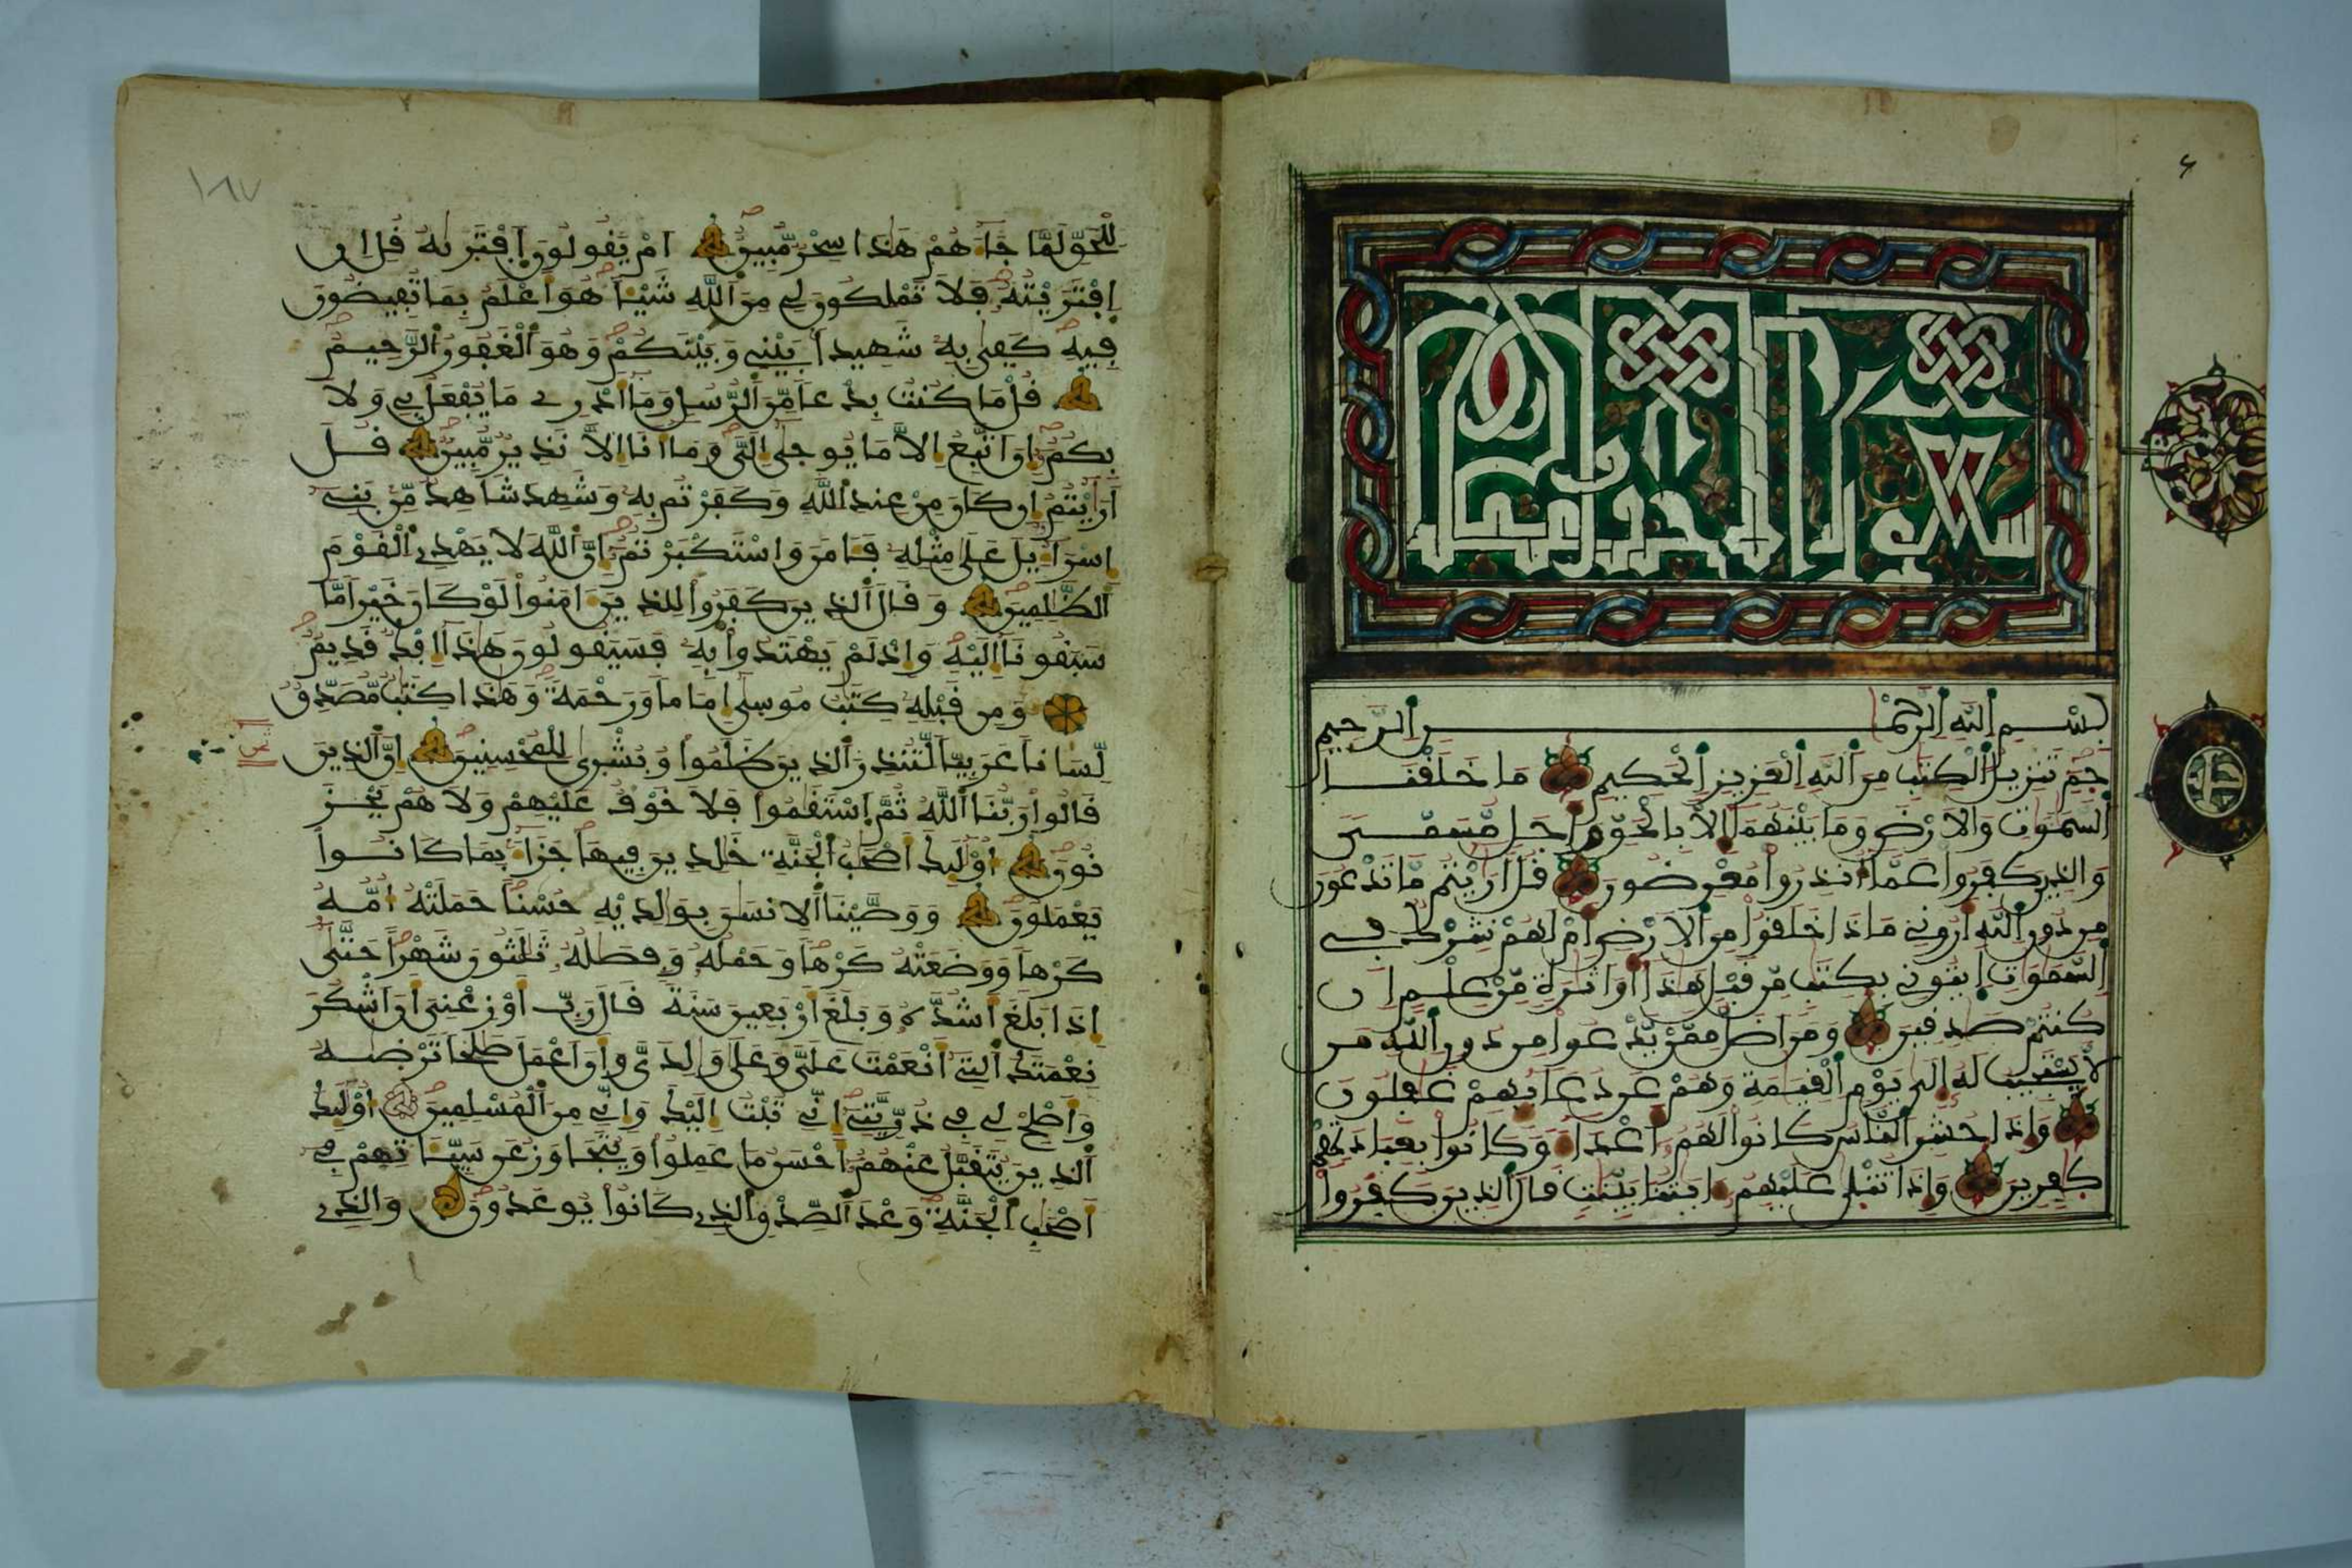 سورة الأحقاف
بسم الله الرحمن الرحيم
حم تنزيل الكتب من الله العزيز الحكيم ما خلقنا
السموت والارض وما بينهما إلا بالحق وأجل مسمى
والذين كفروا عما أنذروا معرضون قل ارايتم ما تدعون
من دون الله أروني ماذا خلقوا من الارض أم لهم شرك في
السموت ايتوني بكتب من قبل هذا أو اثرة من علم ان
كنتم صدقين ومن اضل ممن يدعوا من دون الله من
لا يستجيب له إلى يوم القيمة وهم عن دعايهم غفلون
وإذا حشر الناس كانوا لهم أعداء وكانوا بعبادتهم
كفرين وإذا تتلى عليهم ءايتنا بينت قال الذين كفروا
١٨٧
للحق لما جاءهم هذا سحر مبين ام يقولون افتريه قل ان
افتريته فلا تملكون لي من الله شيئا هو أعلم بما تفيضون
فيه كفى به شهيدا بيني وبينكم وهو الغفور الرحيم
قل ما كنت بدعا من الرسل وما أدري ما يفعل بي ولا
بكم إن اتبع إلا ما يوحى إلي وما انا إلا نذير مبين قل
أرايتم إن كان من عند الله وكفرتم به وشهد شاهد من بني
إسراءيل على مثله فامن واستكبرتم إن الله لا يهدي القوم
الظلمين وقال الذين كفروا للذين ءامنوا لو كان خيرا ما
سبقونا إليه وإذ لم يهتدوا به فسيقولون هذا إفك قديم
ومن قبله كتب موسى إماما ورحمة وهذا كتب مصدق
لسانا عربيا لتنذر الذين ظلموا وبشرى للمحسنين إن الذين
قالوا ربنا الله ثم استقموا فلا خوف عليهم ولا هم يحز
نون أولئك أصحب الجنة خلدين فيها جزاء بما كانوا
يعملون ووصينا الانسن بولديه حسنا حملته أمه
كرها ووضعته كرها وحمله وفصله ثلثون شهرا حتى
إذا بلغ أشده وبلغ أربعين سنة قال رب أوزعني أن أشكر
نعمتك التي أنعمت علي وعلى ولدي وان أعمل صلحا ترضيه
وأصلح لي في ذريتي إني تبت إليك وإني من المسلمين أولئك
الذين يتقبل عنهم أحسن ما عملوا ويتجاوز عن سيئاتهم في
أصحب الجنة وعد الصدق الذي كانوا يوعدون والذي